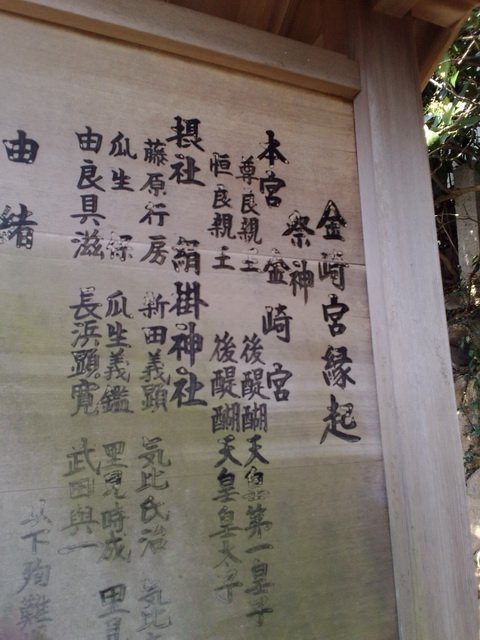 金崎宮縁起
祭神
本宮 金崎宮
尊良親王 後醍醐天皇第一皇子
恒良親王 後醍醐天皇皇太子
摂社 絹掛神社
藤原行房 新田義顕 気比氏治 気比
瓜生 保 瓜生義鑑 里見時成 里見
由良具滋 長浜顕寛 武田與一
以下殉難
由緒